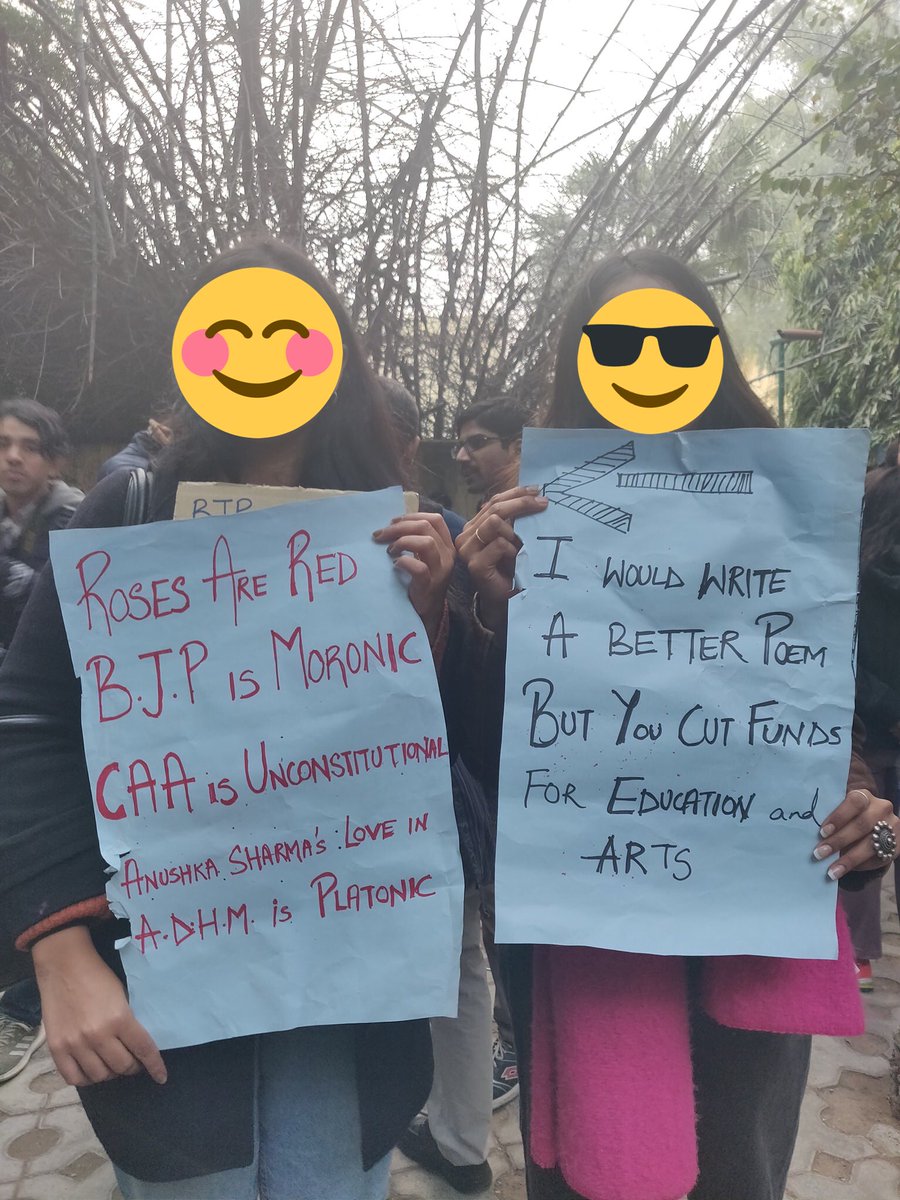 BJP
ROSES ARE RED
B.J.P IS MORONIC
CAA IS UNCONSTITUTIONAL
ANUSHKA SHARMA'S LOVE IN
A.D.H.M. is PLATONIC
I WOULD WRITE
A BETTER POEM
BUT YOU CUT FUNDS
FOR EDUCATION and
ARTS